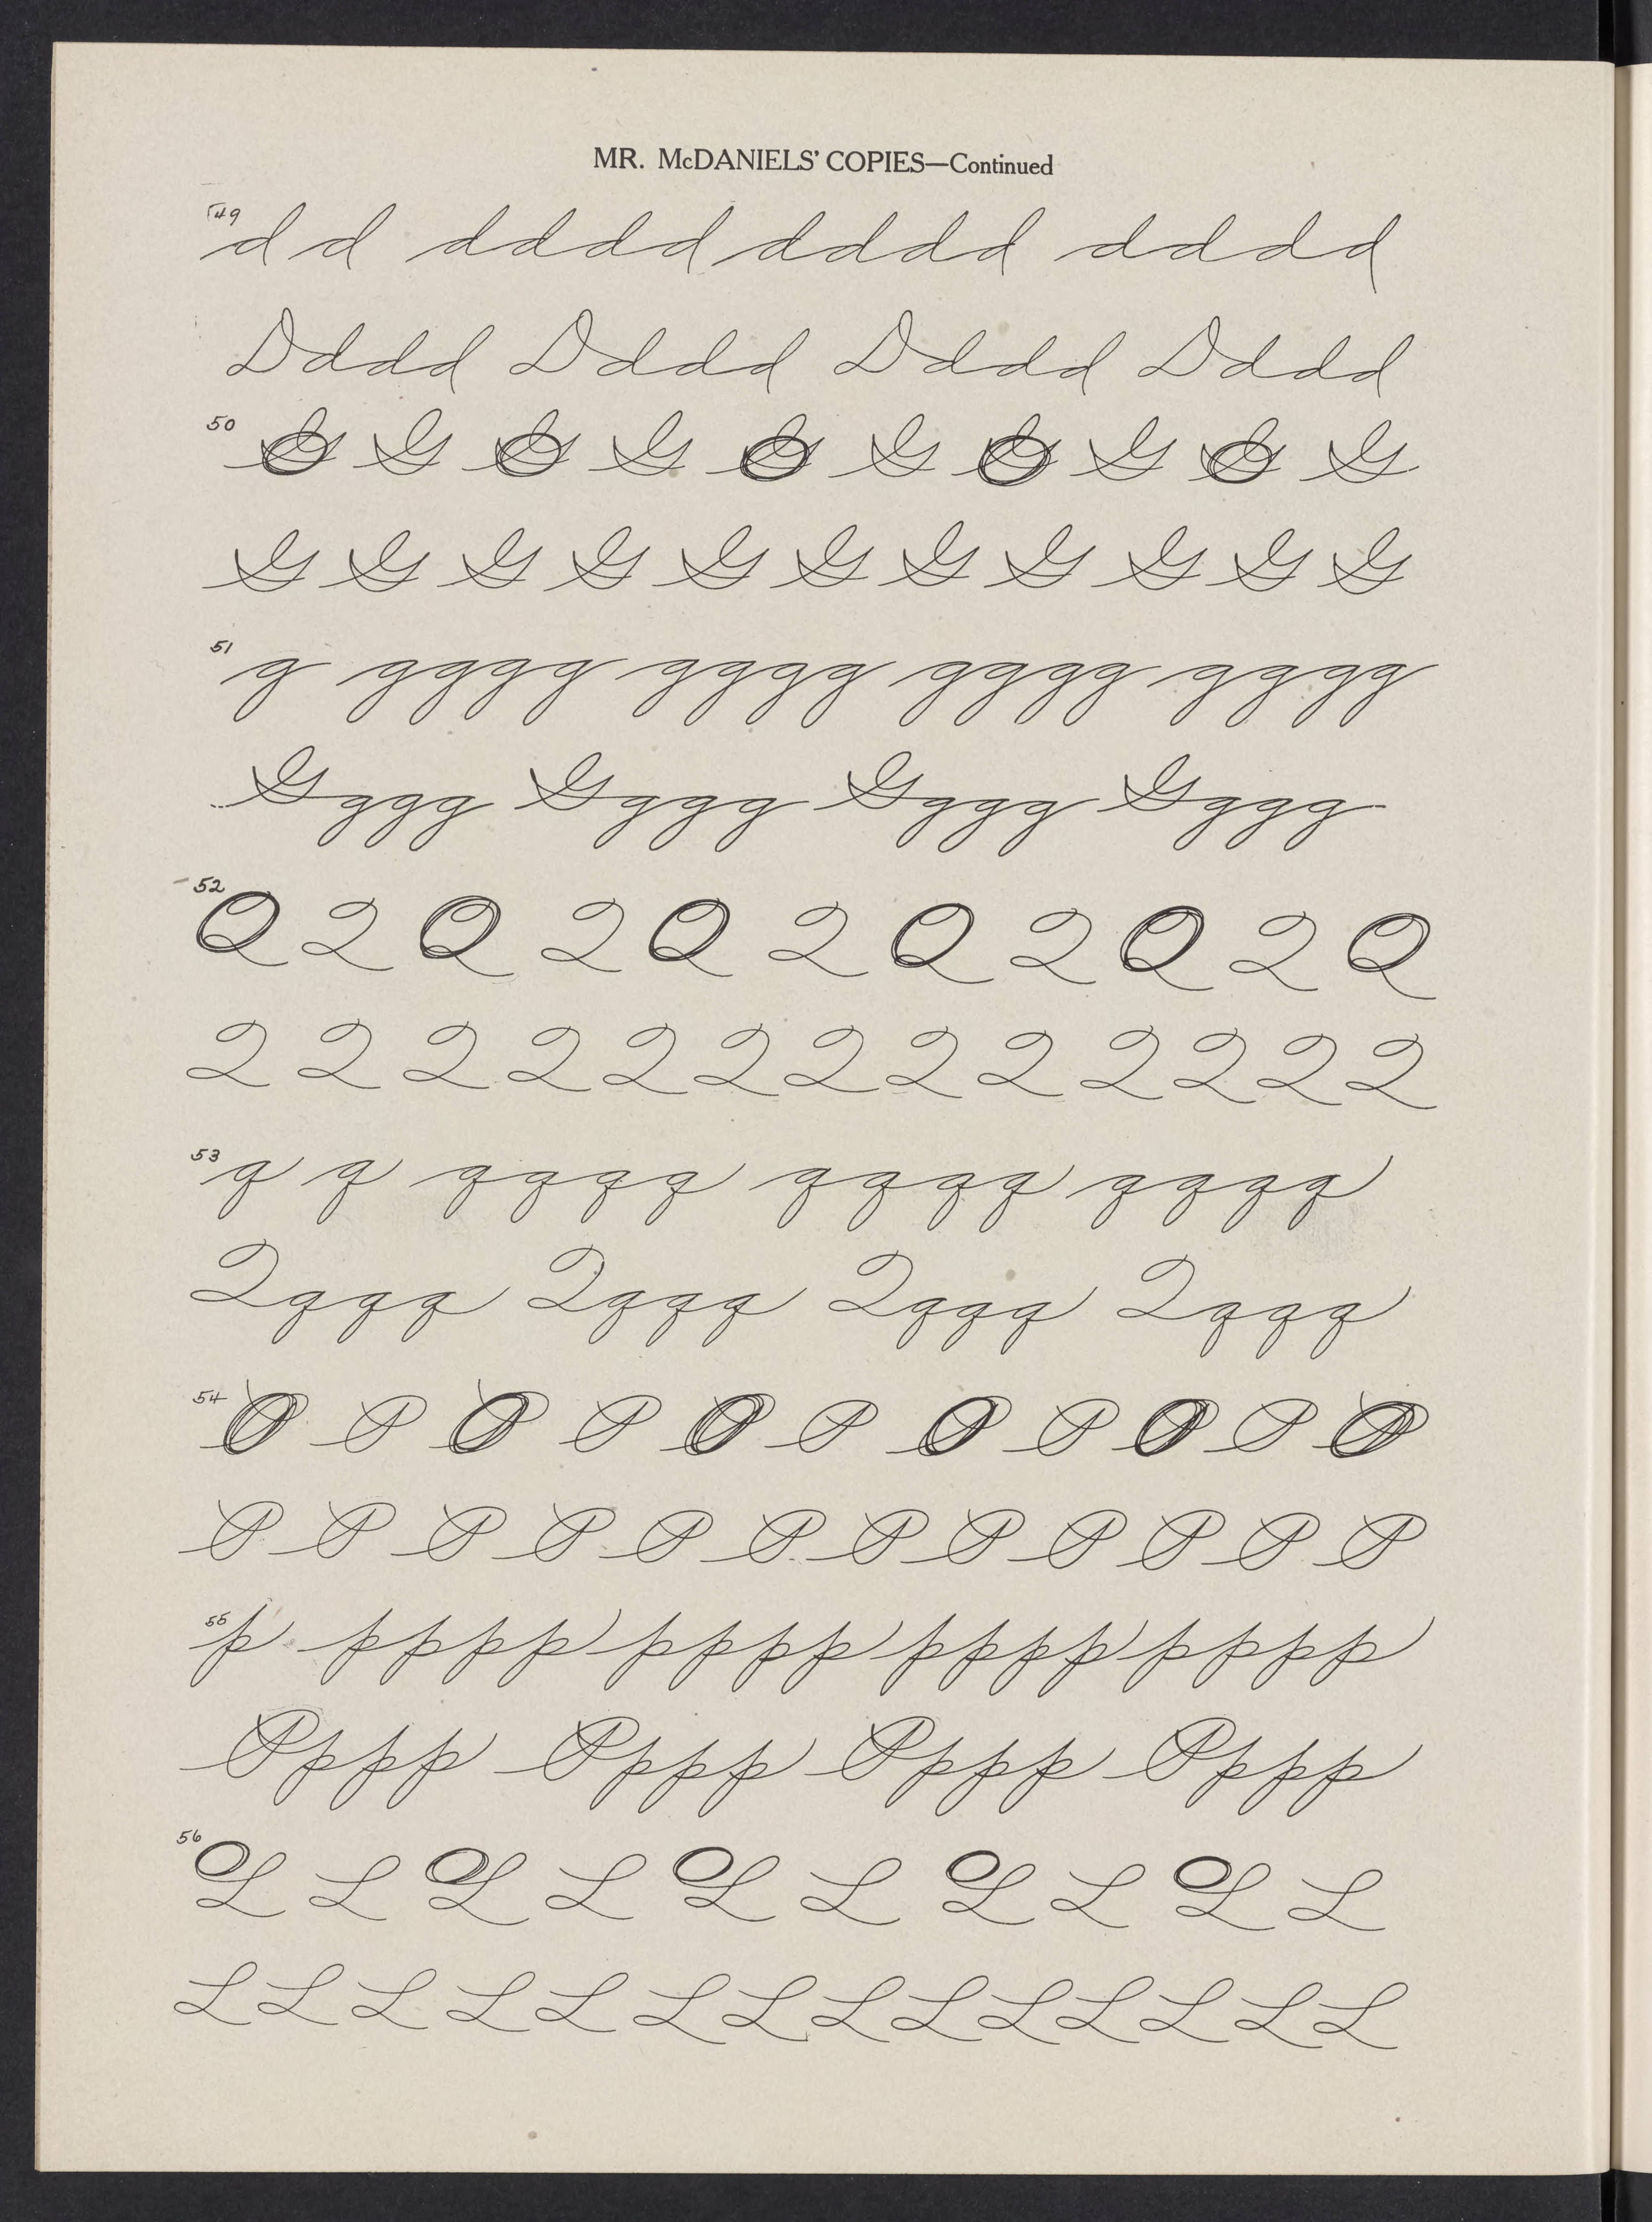 MR. McDANIELS' COPIES—Continued
49 d d dddd dddd dddd
Dddd Dddd Dddd Dddd
50 G G G G G G G G G G
G G G G G G G G G G G
51 g gggg gggg gggg gggg
Gggg Gggg Gggg Gggg
52 Q Q Q Q Q Q Q Q Q Q Q
Q Q Q Q Q Q Q Q Q Q Q Q Q
53 q q qqqq qqqq qqqq
Qqqq Qqqq Qqqq Qqqq
54 P P P P P P P P P P P
P P P P P P P P P P P P
55 p pppp pppp pppp pppp
Pppp Pppp Pppp Pppp
56 L L L L L L L L L L
L L L L L L L L L L L L L L